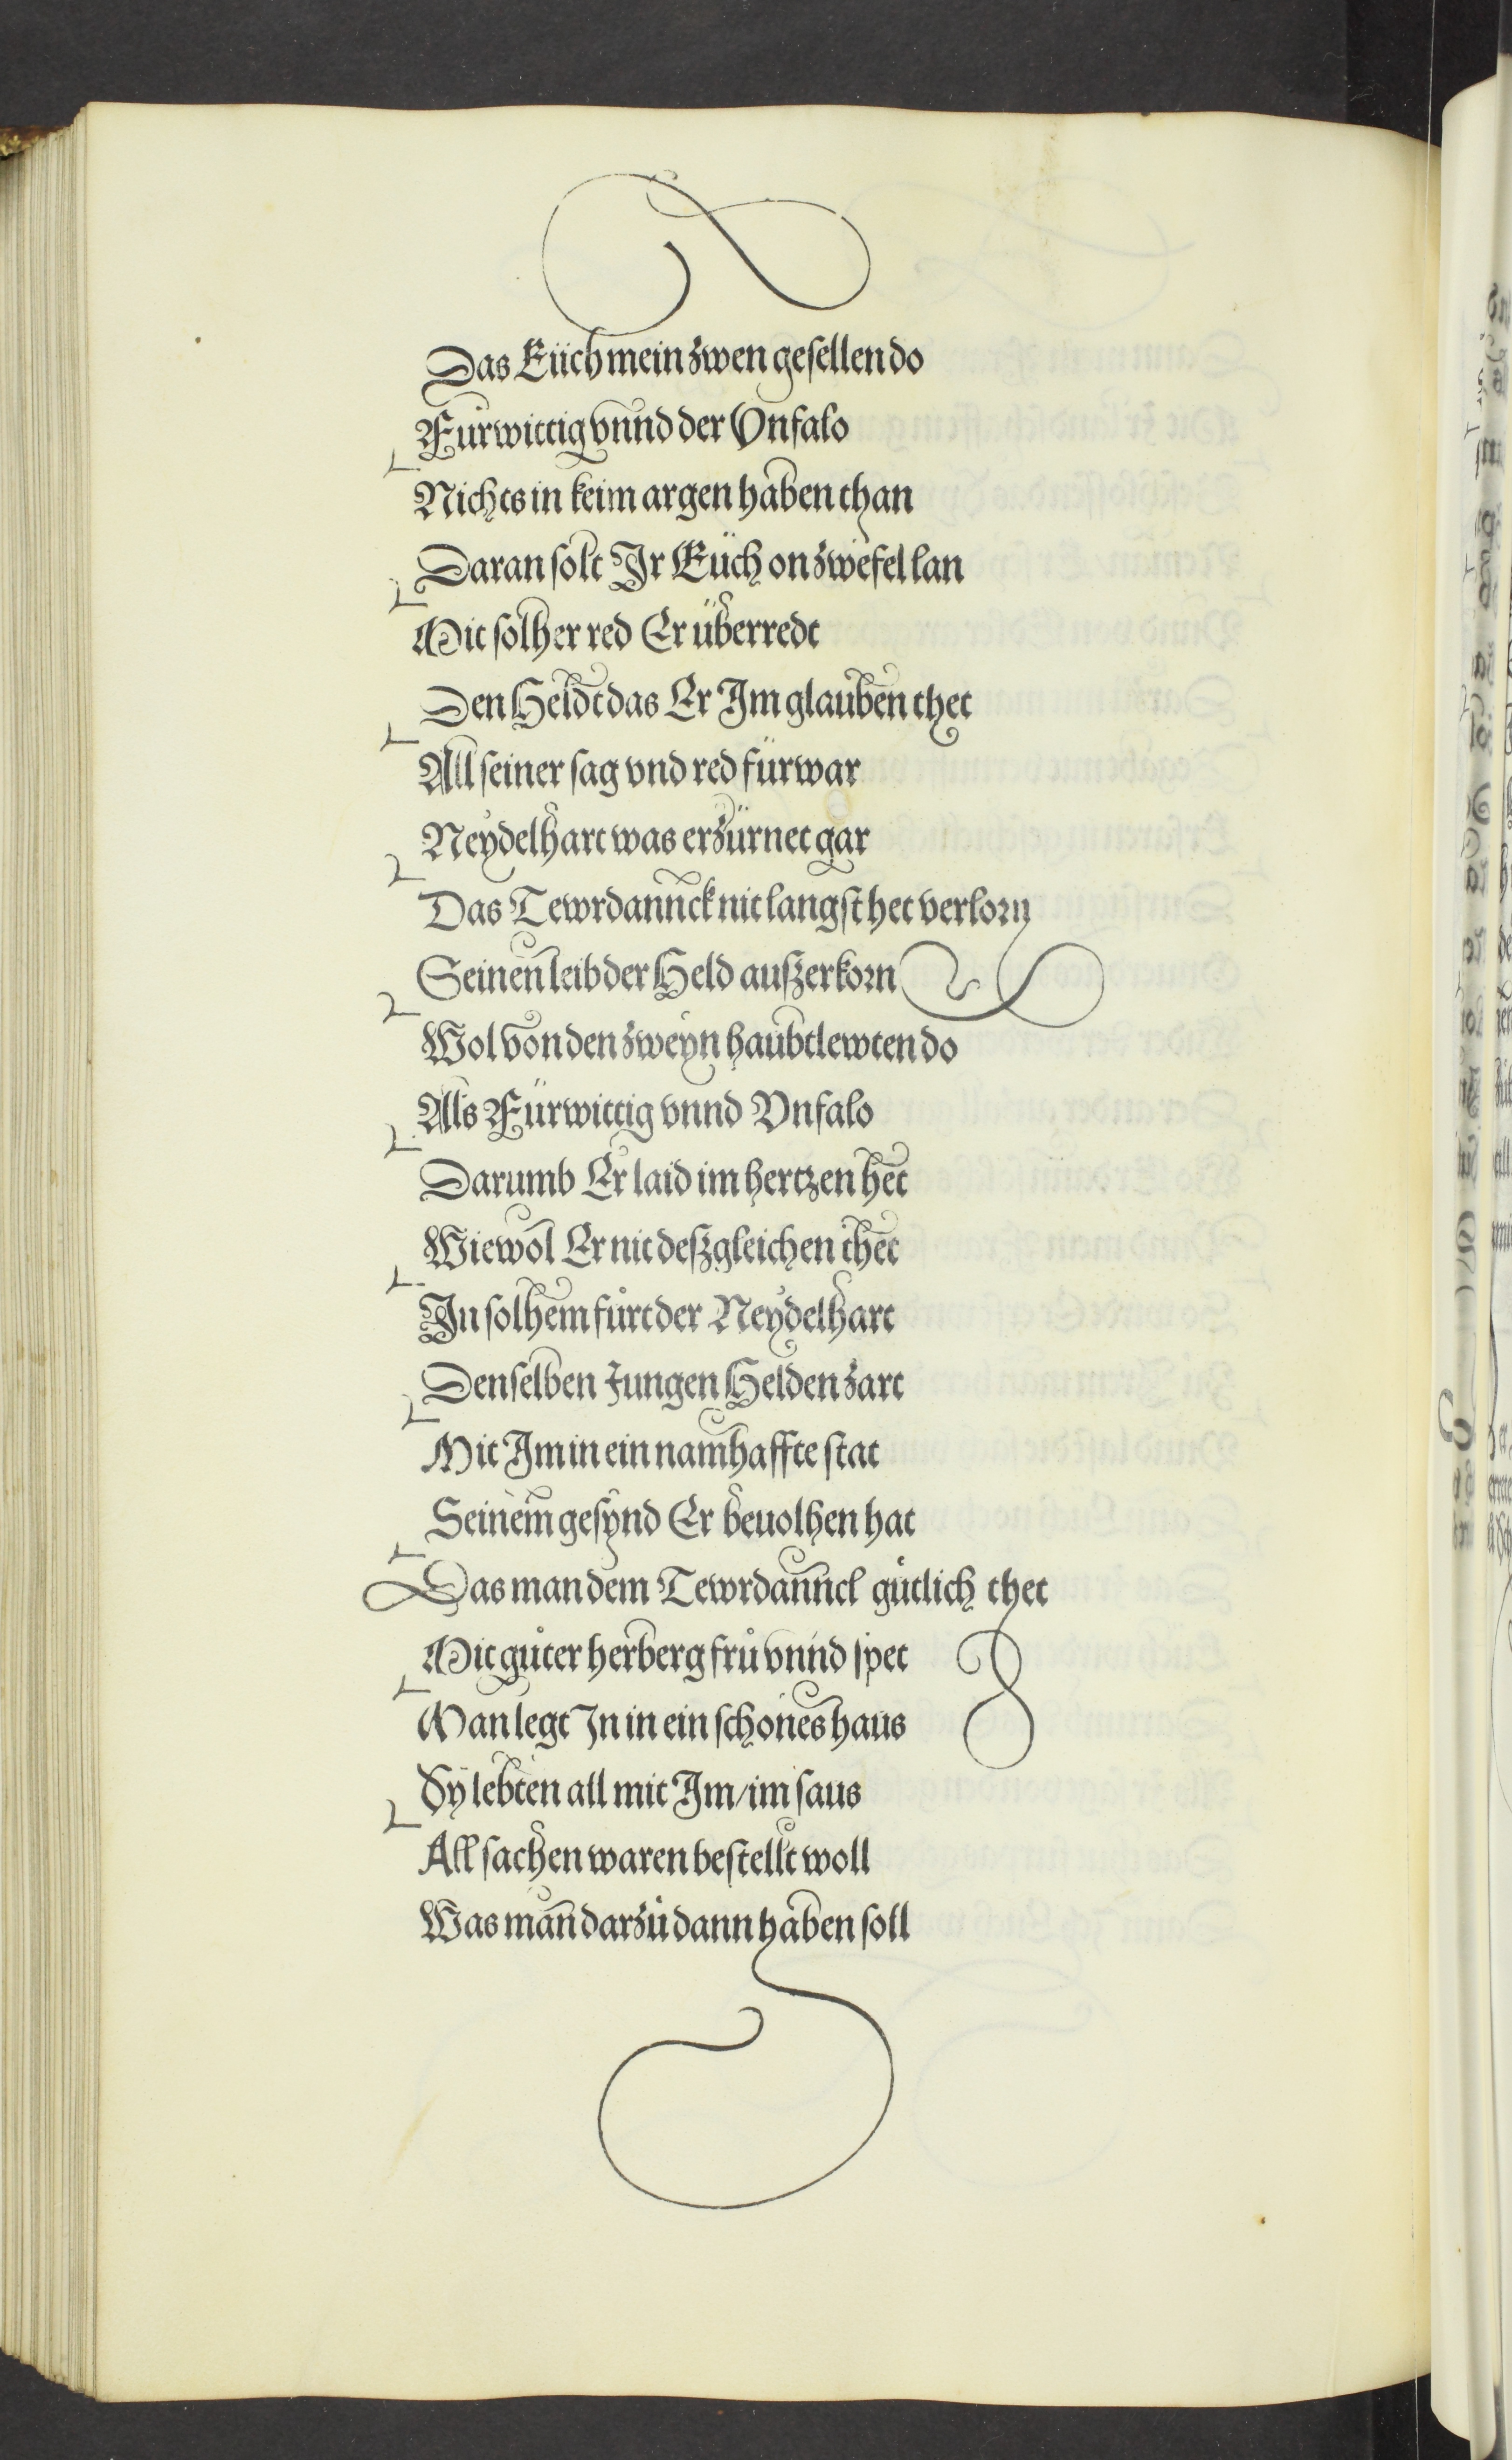 Das Eüch mein zwen gesellen do
Fürwittig vnnd der Vnfalo
Nichts in keim argen haben than
Daran solt Jr Eüch on zwefel lan
Mit solher red Er überredt
Den Heldt das Er Im glauben thet
All seiner sag vnd red fürwar
Neydelhart was erzürnet gar
Das Tewrdannck nit langst het verlorn
Seinen leib der Held außerkorn
Wol von den zweyn haubtlewten do
Als Fürwittig vnnd Vnfalo
Darumb Er laid im hertzen het
Wiewol Er nit deßgleichen thet
In solhem fürt der Neydelhart
Denselben Jungen Helden zart
Mit Im in ein namhaffte stat
Seinem gesynd Er beuolhen hat
Das man dem Tewrdannck gůtlich thet
Mit gůter herberg frů vnnd spet
Man legt In in ein schones haus
Sy lebten all mit Im/im saus
All sachen waren bestellt woll
Was man darzů dann haben soll